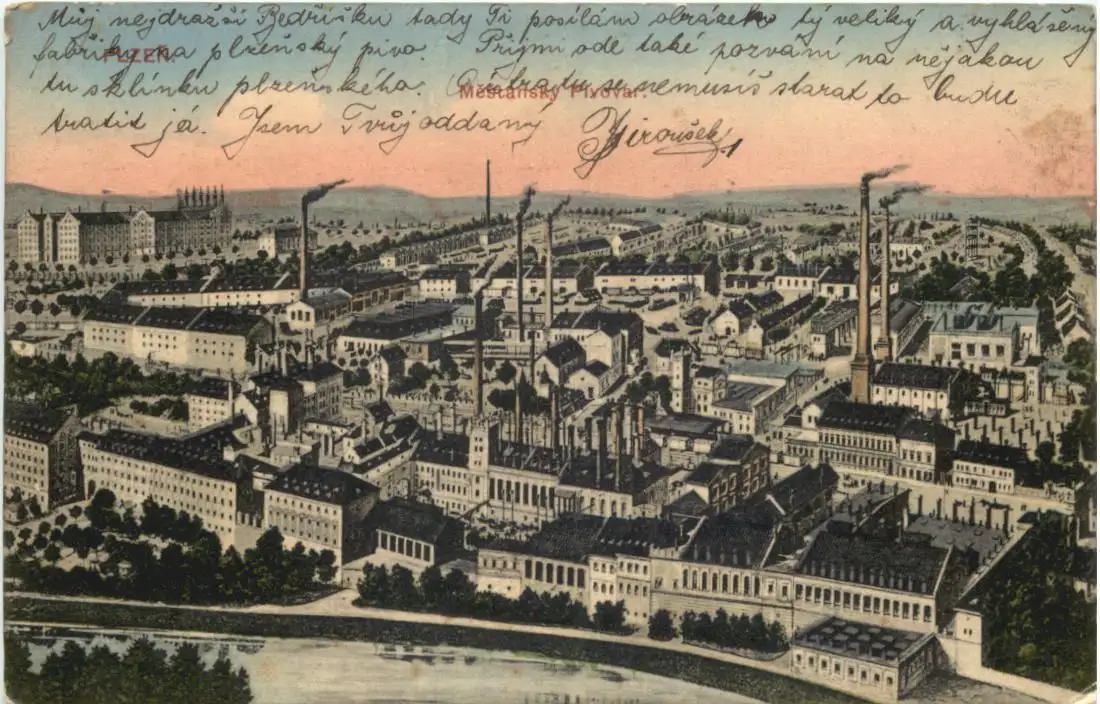 Můj nejdražší Bedříšku tady Ti posílám obrázek tý veliký a vyhlášený
fabriky na plzeňský pivo. Přijmi ode také pozvání na nějakou
PLZEŇ.
tu sklínku plzeňského. O útratu se nemusíš starat to budu
Měšťanský Pivovar.
tratit já. Jsem Tvůj oddaný Jiroušek